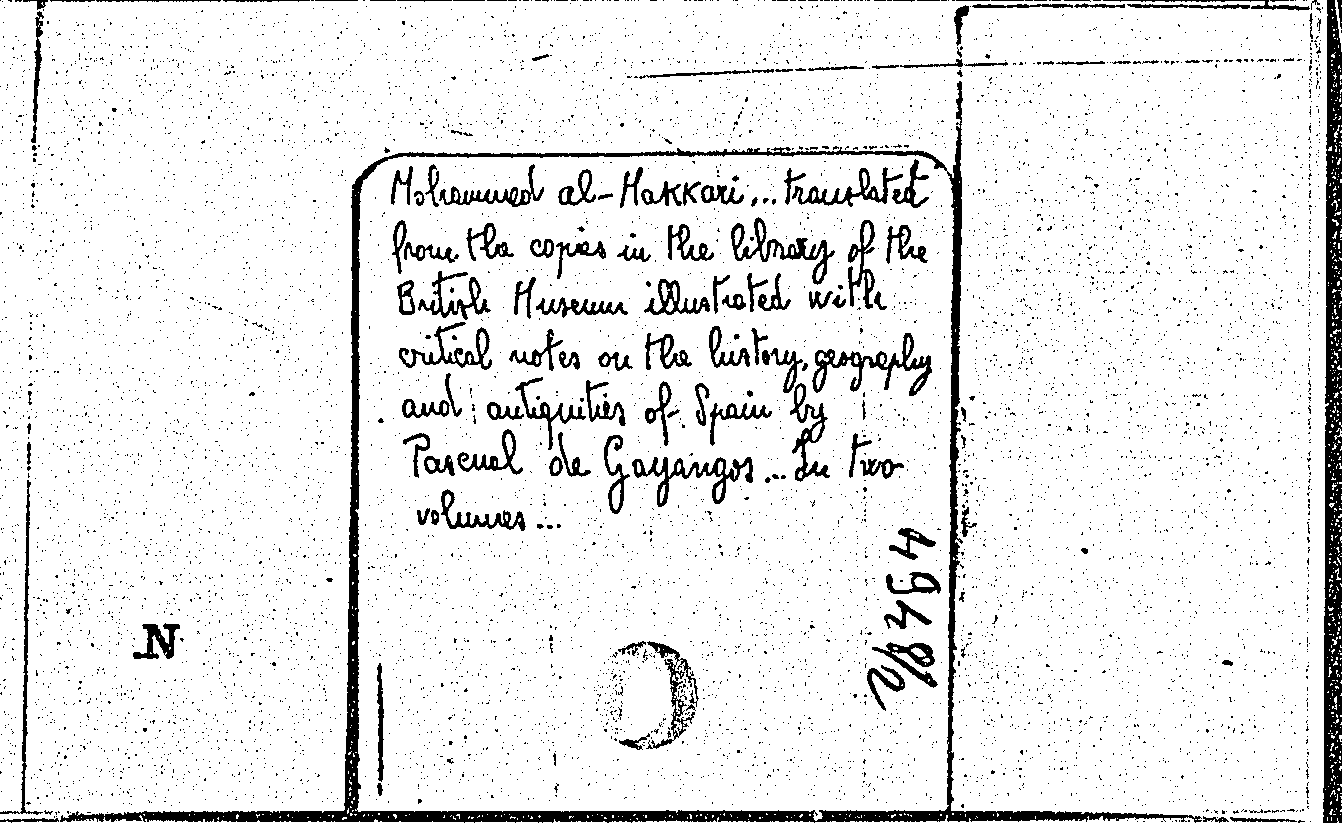 Mohammed al-Makkari... translated
from the copies in the library of the
British Museum illustrated with
critical notes on the history, geography
and antiquities of Spain by
Pascual de Gayangos... In two
volumes...
N